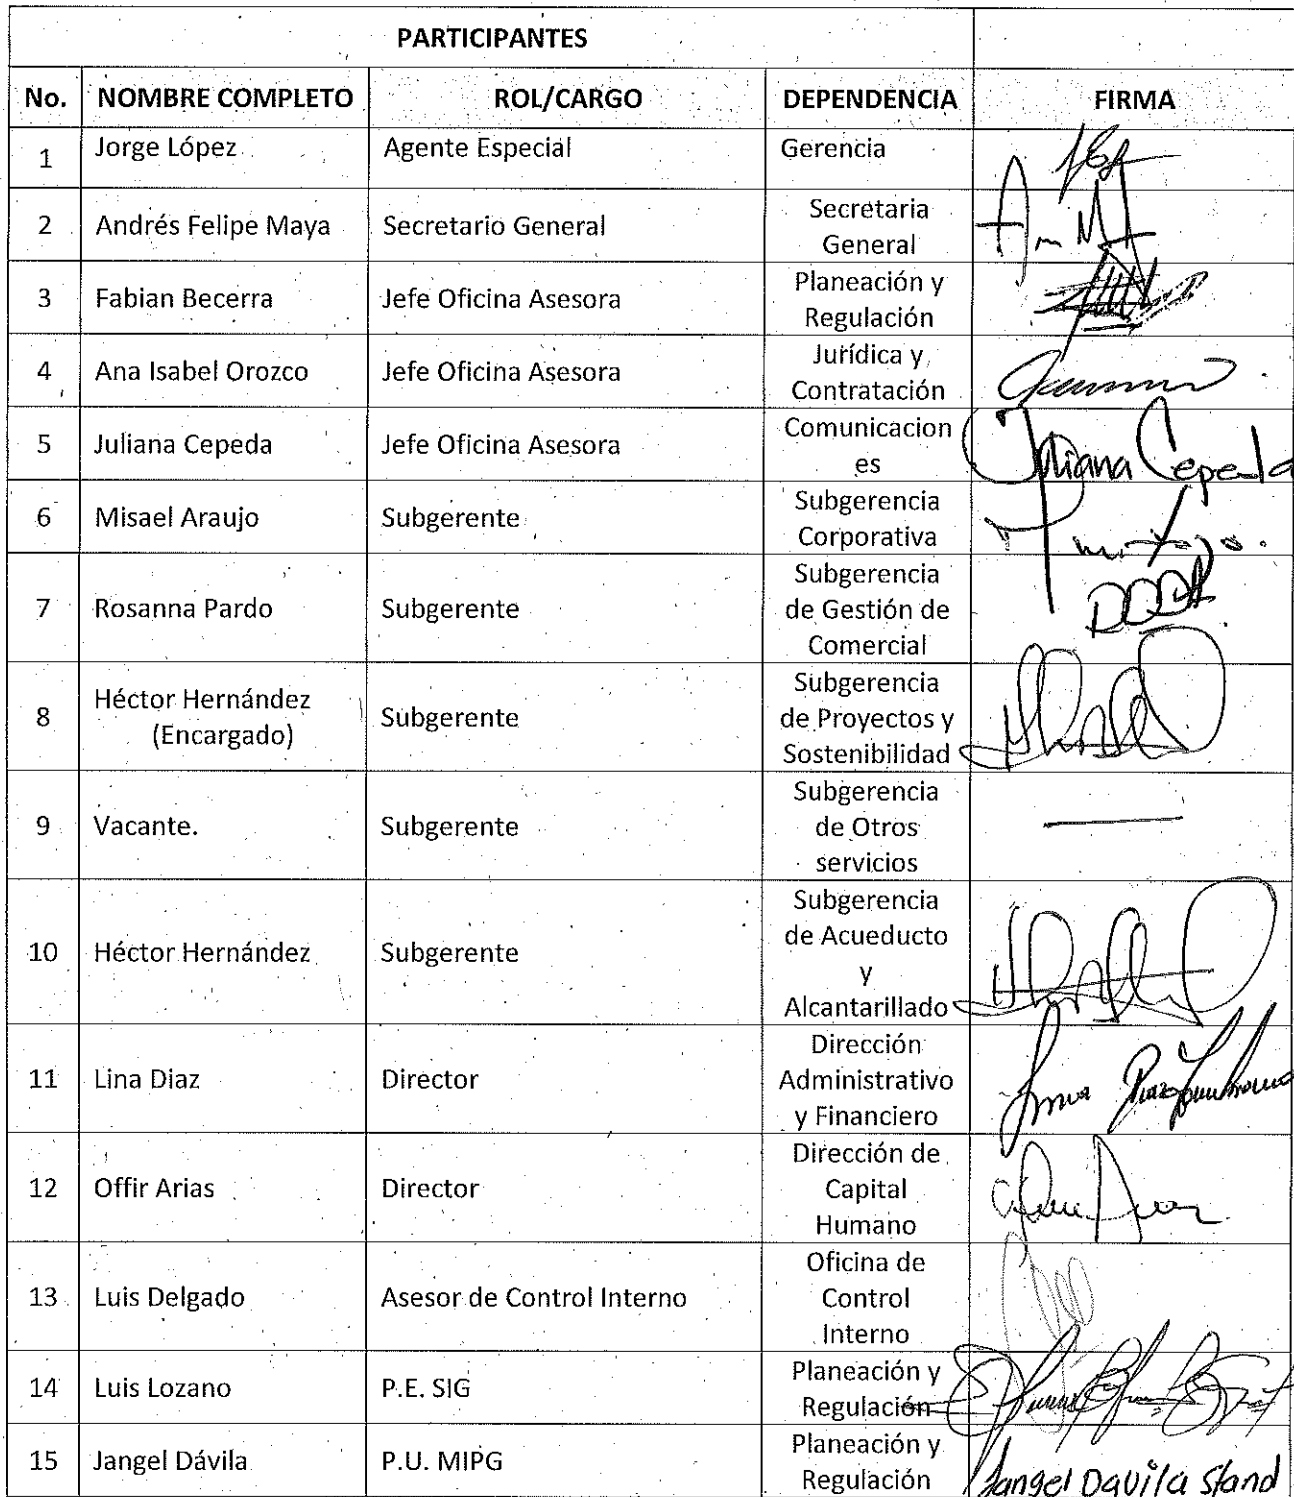 PARTICIPANTES
No. NOMBRE COMPLETO ROL/CARGO DEPENDENCIA FIRMA
1 Jorge López Agente Especial Gerencia
2 Andrés Felipe Maya Secretario General Secretaria
General
3 Fabian Becerra Jefe Oficina Asesora Planeación y
Regulación
4 Ana Isabel Orozco Jefe Oficina Asesora Jurídica y
Contratación
5 Juliana Cepeda Jefe Oficina Asesora Comunicacion
es Juliana Cepeda
6 Misael Araujo Subgerente Subgerencia
Corporativa
7 Rosanna Pardo Subgerente Subgerencia
de Gestión de
Comercial
8 Héctor Hernández
(Encargado) Subgerente Subgerencia
de Proyectos y
Sostenibilidad
9 Vacante. Subgerente Subgerencia
de Otros
servicios
10 Héctor Hernández Subgerente Subgerencia
de Acueducto
y
Alcantarillado
11 Lina Diaz Director Dirección
Administrativo
y Financiero
12 Offir Arias Director Dirección de
Capital
Humano
13 Luis Delgado Asesor de Control Interno Oficina de
Control
Interno
14 Luis Lozano P.E. SIG Planeación y
Regulación
15 Jangel Dávila P.U. MIPG Planeación y
Regulación Jangel Davila Stand